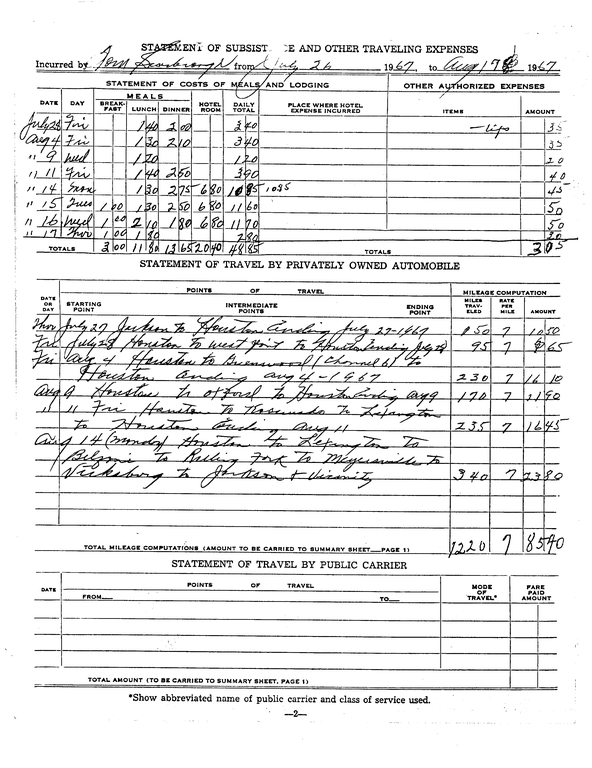 STATEMENT OF SUBSIST CE AND OTHER TRAVELING EXPENSES
Incurred by Tom Scarbrough from July 26 1967, to Aug 17 1967
STATEMENT OF COSTS OF MEALS AND LODGING OTHER AUTHORIZED EXPENSES
DATE DAY MEALS BREAK-FAST LUNCH DINNER HOTEL ROOM DAILY TOTAL PLACE WHERE HOTEL EXPENSE INCURRED ITEMS AMOUNT
July 28 Fri 140 200 340 - tips 35
Aug 4 Fri 130 210 340 35
" 9 Wed 120 120 20
" 11 Fri 140 250 390 40
" 14 Mon 130 275 680 1085 1085 45
" 15 Tues 100 130 250 680 1160 50
" 16 Wed 100 210 180 680 1170 50
" 17 Thur 100 180 280 30
TOTALS 300 1180 1365 2040 4885 TOTALS 305
STATEMENT OF TRAVEL BY PRIVATELY OWNED AUTOMOBILE
DATE OR DAY POINTS OF TRAVEL MILEAGE COMPUTATION
STARTING POINT INTERMEDIATE POINTS ENDING POINT MILES TRAV-ELED RATE PER MILE AMOUNT
Thur July 27 Jackson to Houston ending July 27-1967 150 7 1050
Fri July 28 Houston to west point to Houston ending July 28 95 7 665
Fri Aug 4 Houston to Greenwood (Channel 6) to
Houston ending aug 4-1967 230 7 1610
Aug 9 Houston to oxford to Houston Ending aug 9 170 7 1190
" 11 Fri Houston to Rosedale to Lexington
to Houston Ending Aug 11 235 7 1645
Aug 14 (Monday) Houston to Lexington to
Belzoni to Rolling Fork to Mayersville to
Vicksburg to Jackson & Vicinity 340 7 2380
TOTAL MILEAGE COMPUTATIONS (AMOUNT TO BE CARRIED TO SUMMARY SHEET—PAGE 1) 1220 7 8540
STATEMENT OF TRAVEL BY PUBLIC CARRIER
DATE POINTS OF TRAVEL MODE OF TRAVEL* FARE PAID AMOUNT
FROM— TO—
TOTAL AMOUNT (TO BE CARRIED TO SUMMARY SHEET, PAGE 1)
*Show abbreviated name of public carrier and class of service used.
—2—